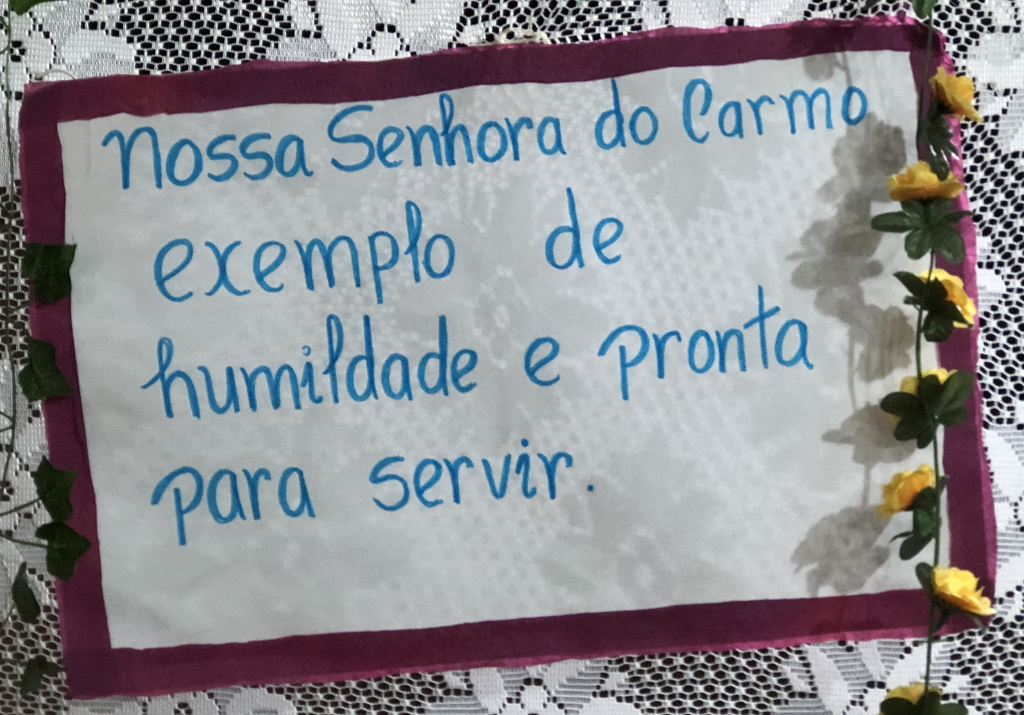 Nossa Senhora do Carmo
exemplo de
humildade e pronta
para servir.